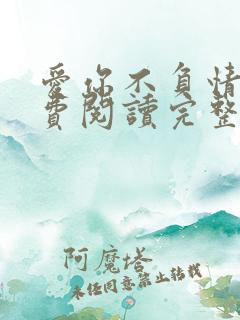 愛你不負情
費閱讀完整
阿魔塔
未经同意禁止转载